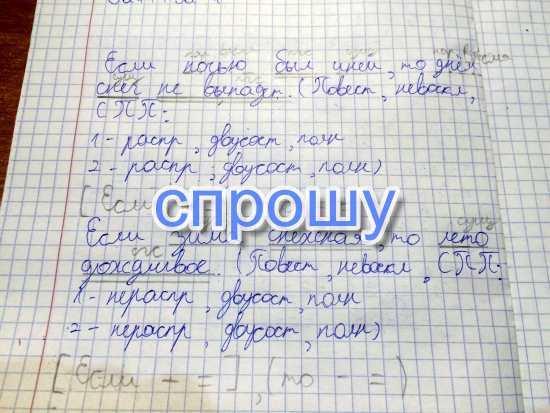 Если ночью был иней, то днём
снег не выпадет. (Повест, невоскл,
СПП:
1 - распр, двусост, полн
2 - распр, двусост, полн)
[Если
спрошу
Если зима снежная, то лето
дождливое. (Повест, невоскл, СПП:
1 - нераспр, двусост, полн
2 - нераспр, двусост, полн)
[Если - = ], (то - = )